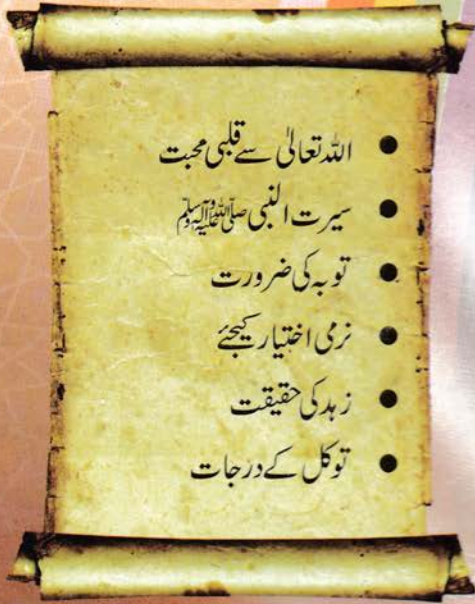 ● اللہ تعالیٰ سے قلبی محبت
● سیرت النبی صلی اللہ علیہ وآلہ وسلم
● توبہ کی ضرورت
● نرمی اختیار کیجئے
● زہد کی حقیقت
● توکل کے درجات